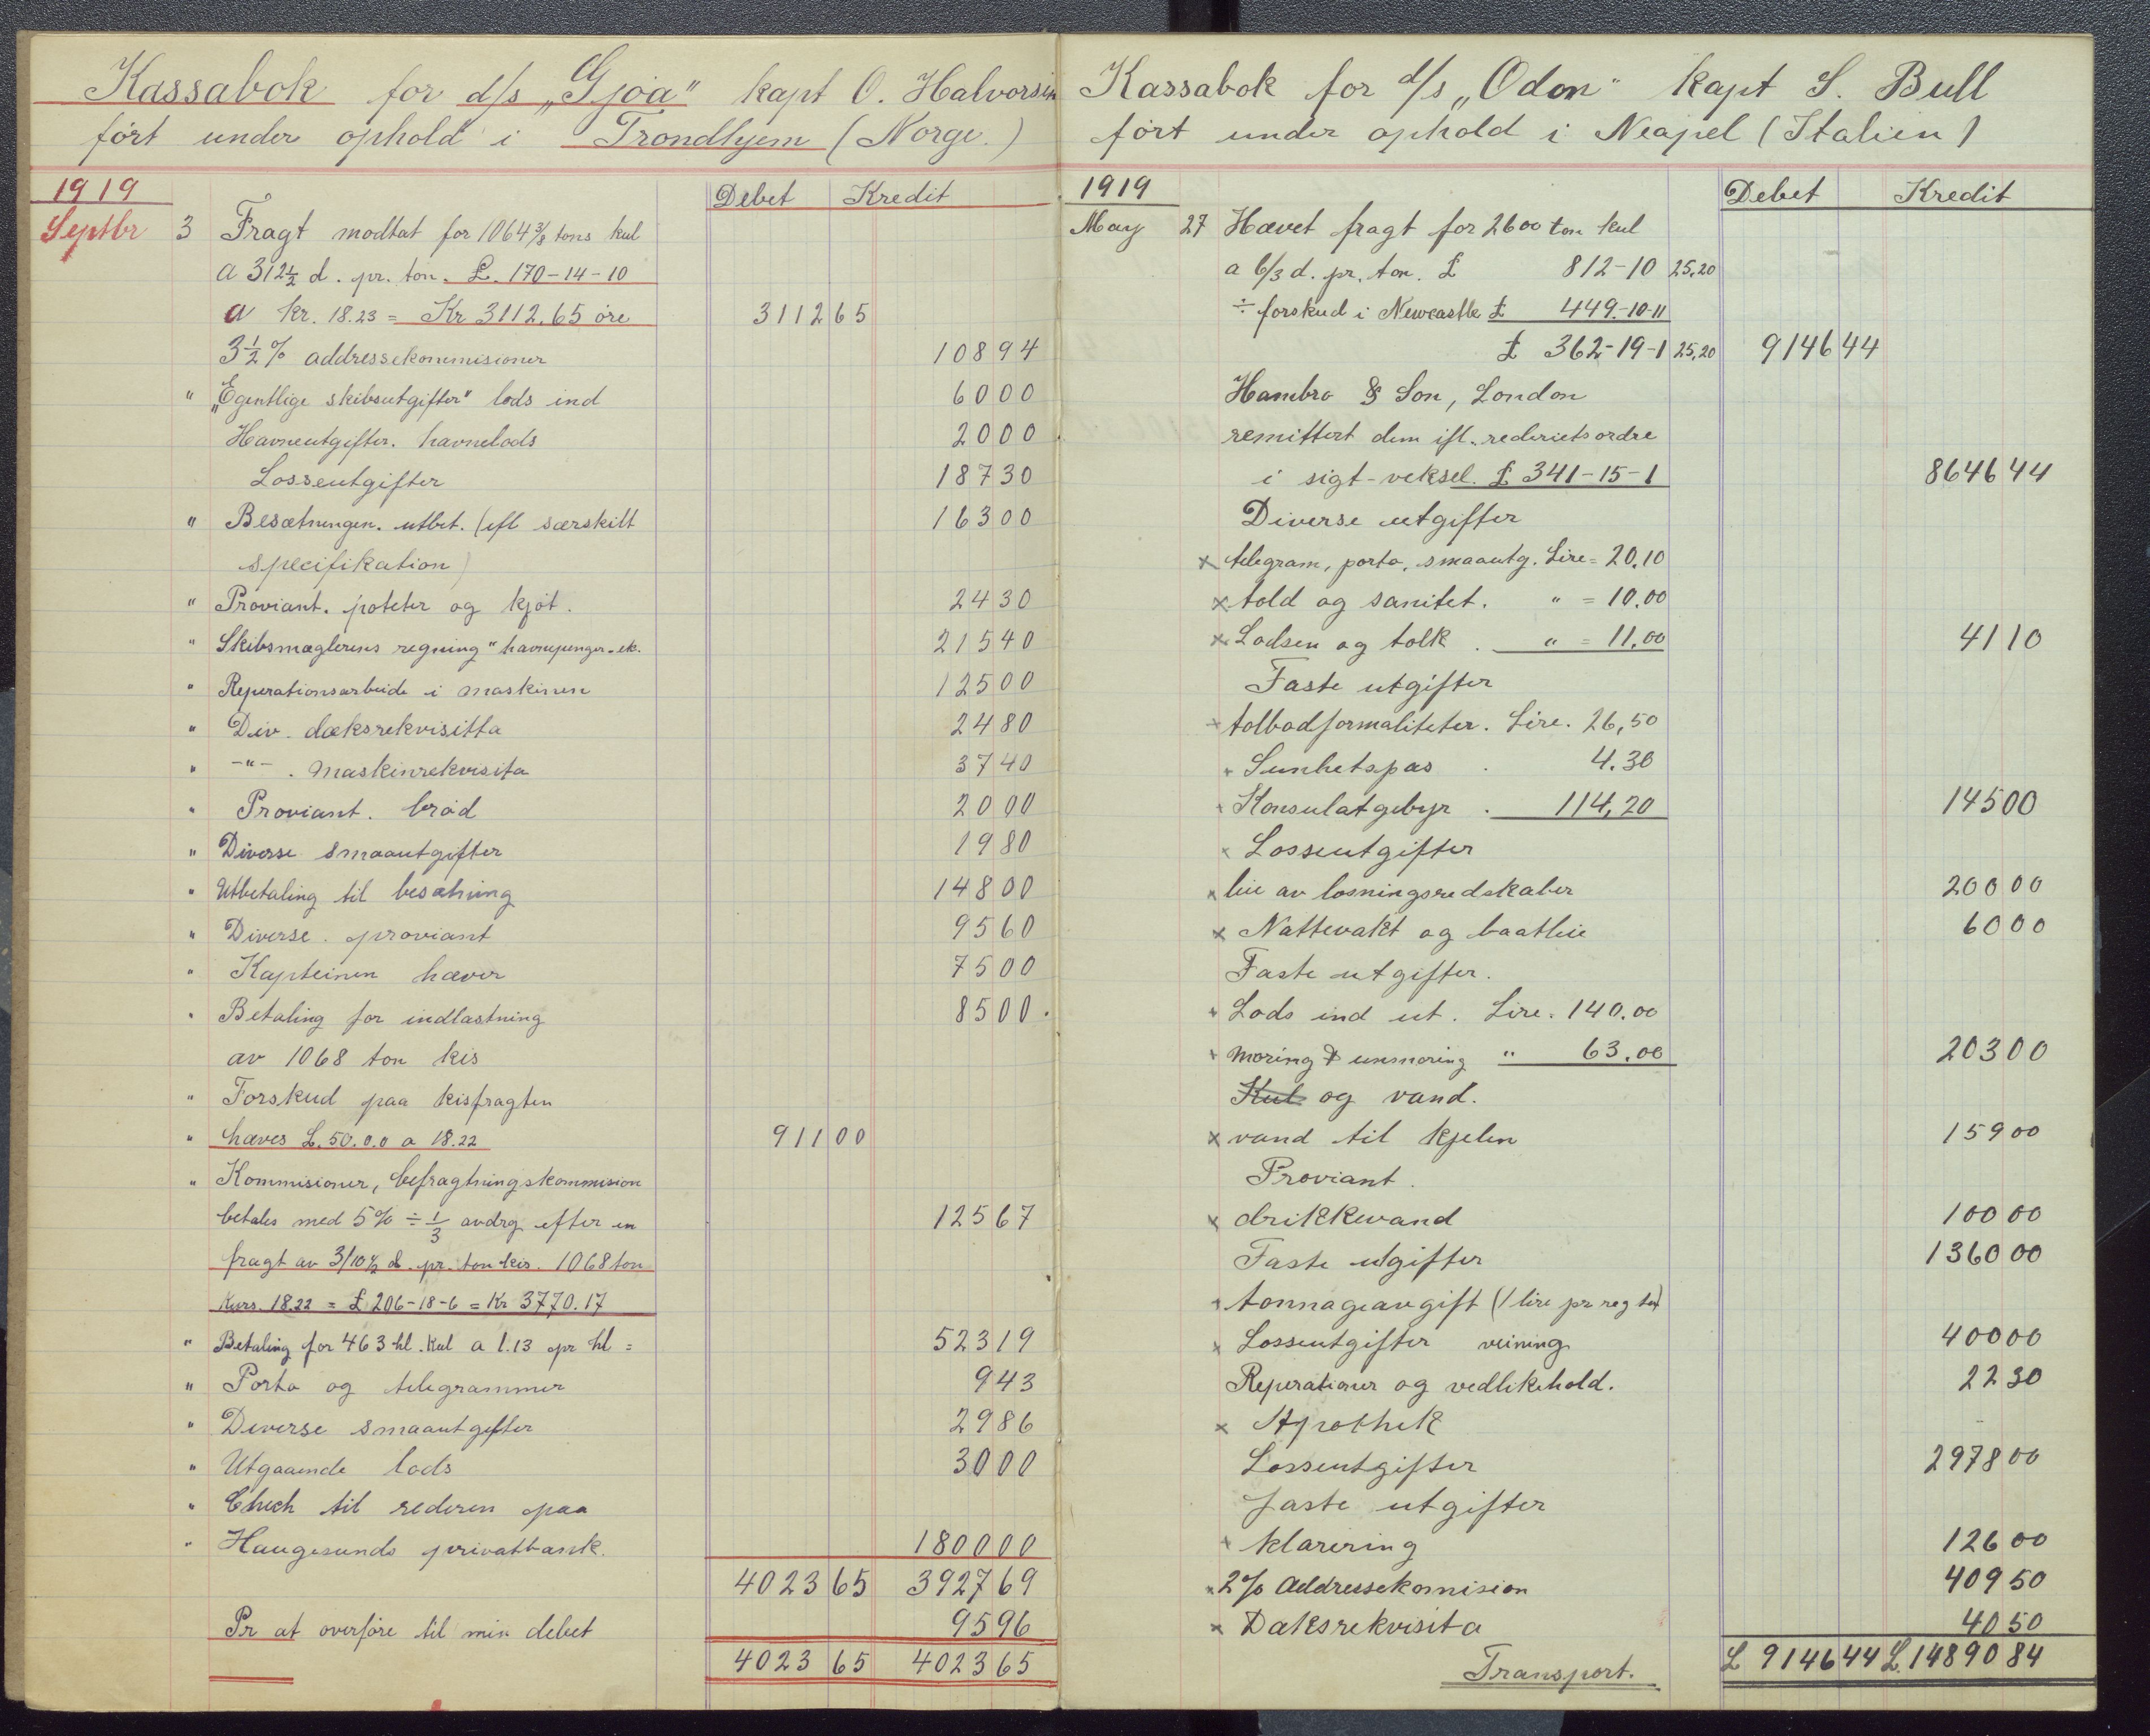 Kassabok for d/s „Gjøa" kapt O. Halvorsin
ført under ophold i Trondhjem (Norge.)
1919
Debet Kredit
Septbr 3 Fragt modtat for 1064 3/8 tons kul
a 3/2 1/2 d. pr. ton. £. 170-14-10
a kr. 18.23 = Kr 3112.65 øre 3112 65
3 1/2 % addressekommisioner 108 94
" „Egentlige skibsutgifter" lods ind 60 00
Havneutgifter. havnelods 20 00
Losseutgifter 187 30
" Besætningen. utbet. (ifl særskilt 163 00
specifikation)
" Proviant. poteter og kjøt. 24 30
" Skibsmæglerens regning "havnepenger-etc. 215 40
" Reperationsarbeide i maskinen 125 00
" Div. dæksrekvisitta 24 80
" -"- . maskinrekvisita 37 40
" Proviant. brød 20 00
" Diverse smaautgifter 19 80
" Utbetaling til besætning 148 00
" Diverse. proviant 95 60
" Kapteinen hæver 75 00
" Betaling for indlastning 85 00.
av 1068 ton kis
" Forskud paa kisfragten
" hæves £. 50.0.0 a 18.22 911 00
" Kommisioner, befragtningskommision
betales med 5% ÷ 1/3 avdrg efter en 125 67
fragt av 3/10 1/2 d. pr. ton kis. 1068 ton
Kurs. 18.22 = £ 206-18-6 = Kr 3770.17
" Betaling for 463 hl. Kul a 1.13 pr hl = 523 19
" Porto og telegrammer 9 43
" Diverse smaautgifter 29 86
" Utgaaende lods 30 00
" Check til rederen paa
" Haugesunds privatbank. 1800 00
4023 65 3927 69
Pr at overføre til min debet 95 96
4023 65 4023 65
Kassabok for d/s „Odon" kapt S. Bull
ført under ophold i Neapel (Italien)
1919
Debet Kredit
May 27 Hævet fragt for 2600 ton kul
a 6/3 d. pr. ton. £ 812-10 25,20
÷ forskud i Newcastle £ 449.-10-11
£ 362-19-1 25,20 9146 44
Hambro & Son, London
remittert dem ifl. rederiets ordre
i sigt-veksel. £ 341-15-1 8646 44
Diverse utgifter
x telegram, porto, smaautg. Lire = 20.10
x told og sanitet. " = 10.00
x Lodsen og tolk . " = 11.00 41 10
Faste utgifter
x tolbodformaliteter. Lire. 26,50
x Sunhetspas . 4.30
x Konsulatgebyr . 114,20 145 00
x Losseutgifter
x leie av losningsredskaber 200 00
x Nattevakt og baatleie 60 00
Faste utgifter.
x Lods ind ut. Lire. 140.00
x moring & unmoring " 63.00 203 00
Kul og vand.
x vand til kjelen 159 00
Proviant.
x drikkevand 100 00
Faste utgifter 1360 00
x tonnageavgift (1 lire pr reg ton)
x Losseutgifter veining 400 00
Reperationer og vedlikehold. 22 30
x Apothek
Losseutgifter 2978 00
faste utgifter
x klarering 126 00
x 2% Addressekomision 409 50
x Dæksrekvisita 40 50
Transport. £ 9146 44 £. 14890 84